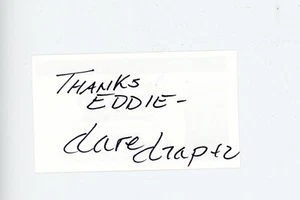 THANKS
EDDIE-
dave draper